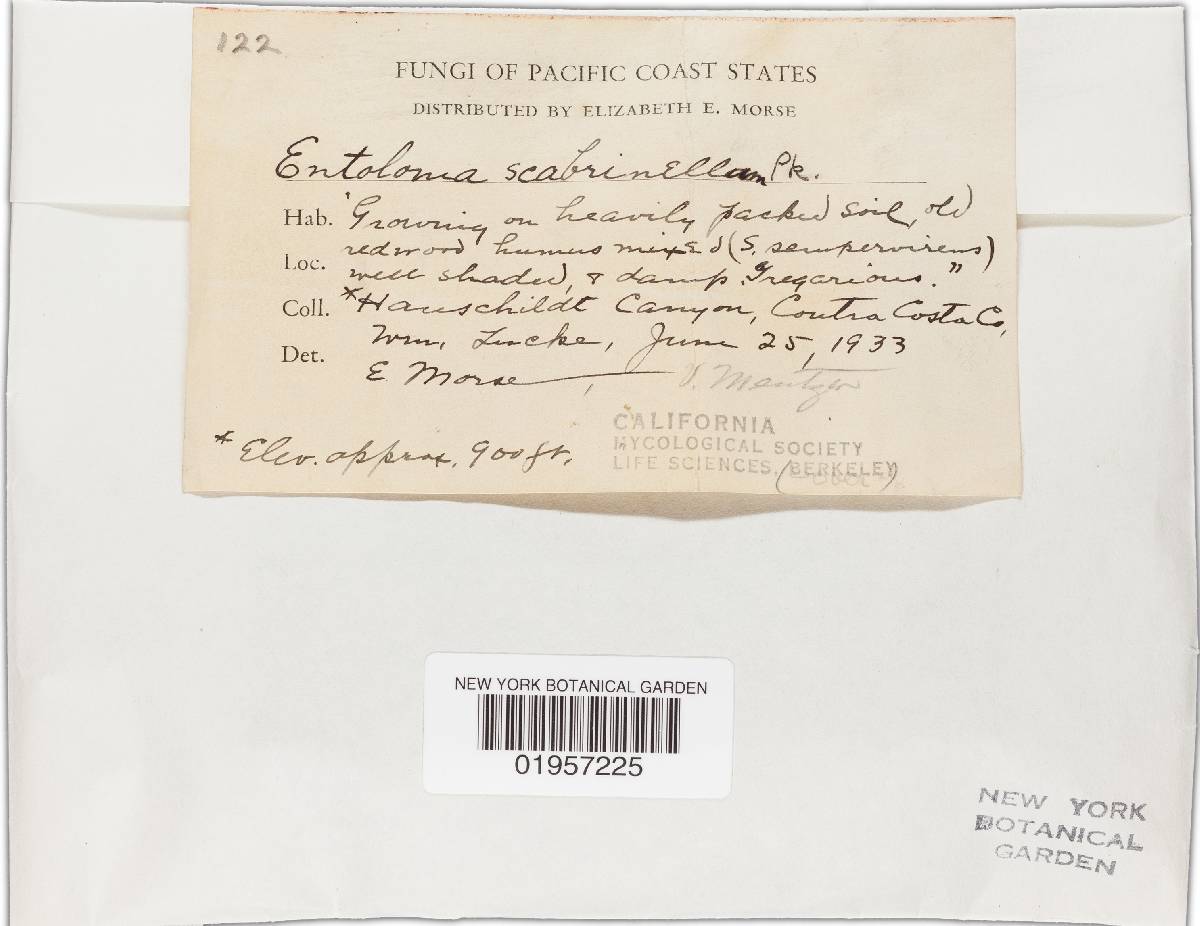 122
FUNGI OF PACIFIC COAST STATES
DISTRIBUTED BY ELIZABETH E. MORSE
Entoloma scabrinellum Pk.
Hab. "Growing on heavily packed soil, old
redwood humus mixed (S. sempervirens)
Loc.
well shaded, & damp. Gregarious."
Coll. *Hauschildt Canyon, Contra Costa Co,
Wm. Lucke, June 25, 1933
Det.
E Morse, V. Mentzer
CALIFORNIA
MYCOLOGICAL SOCIETY
* Elev. approx. 900 ft.
LIFE SCIENCES, BERKELEY
NEW YORK BOTANICAL GARDEN
01957225
NEW YORK
BOTANICAL
GARDEN